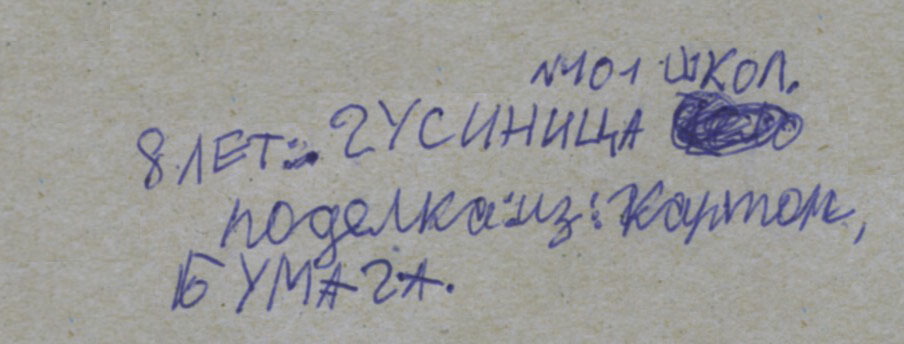 №101 ШКОЛ.
8 ЛЕТ: ГУСИНИЦА
поделка:из:Картон,
БУМАГА.